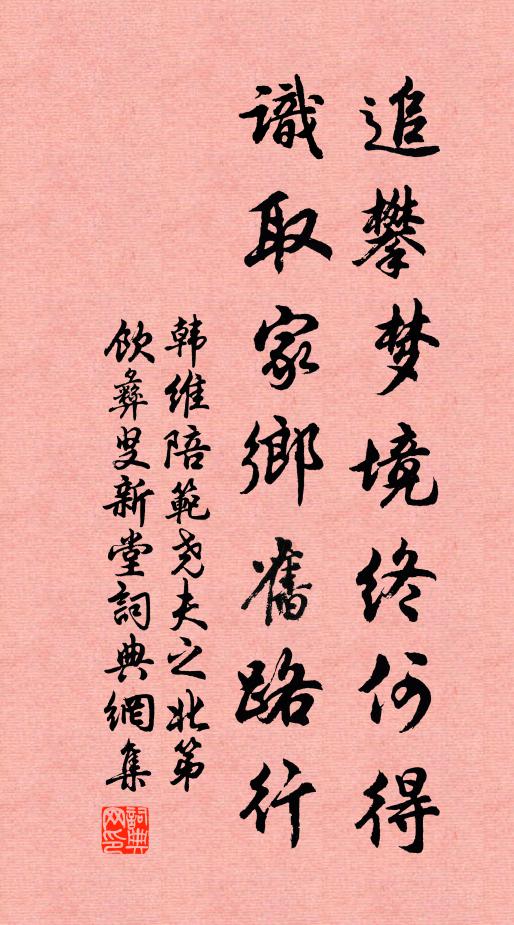 追攀梦境终何得
識取家鄉舊路行
韩维陪範尧夫之北第
飲彝叟新堂詞典網集
詞典网印